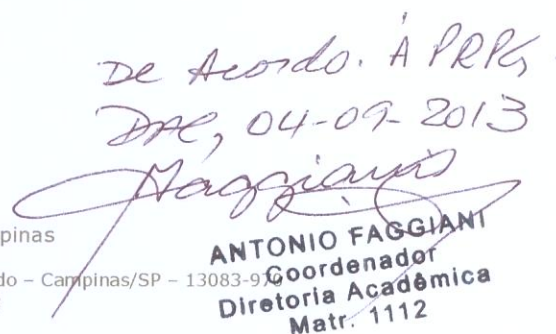 De Acordo. À PRPG,
DAC, 04-09-2013
Faggiani
pinas
do – Campinas/SP – 13083-970
ANTONIO FAGGIANI
Coordenador
Diretoria Acadêmica
Matr. 1112